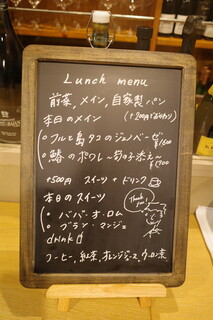 Lunch menu
前菜、メイン、自家製パン
本日のメイン (+200円
。フルと島タコのジェノベーゼ ¥1600
。鰆のポワレ〜旬の子添え〜 ¥1700
+500円 スイーツ + ドリンク
本日のスイーツ
Thank you!
・ババ・オ・ロム
・ブラン・マンジェ
drink
コーヒー,紅茶,オレンジジュース,ウーロン茶